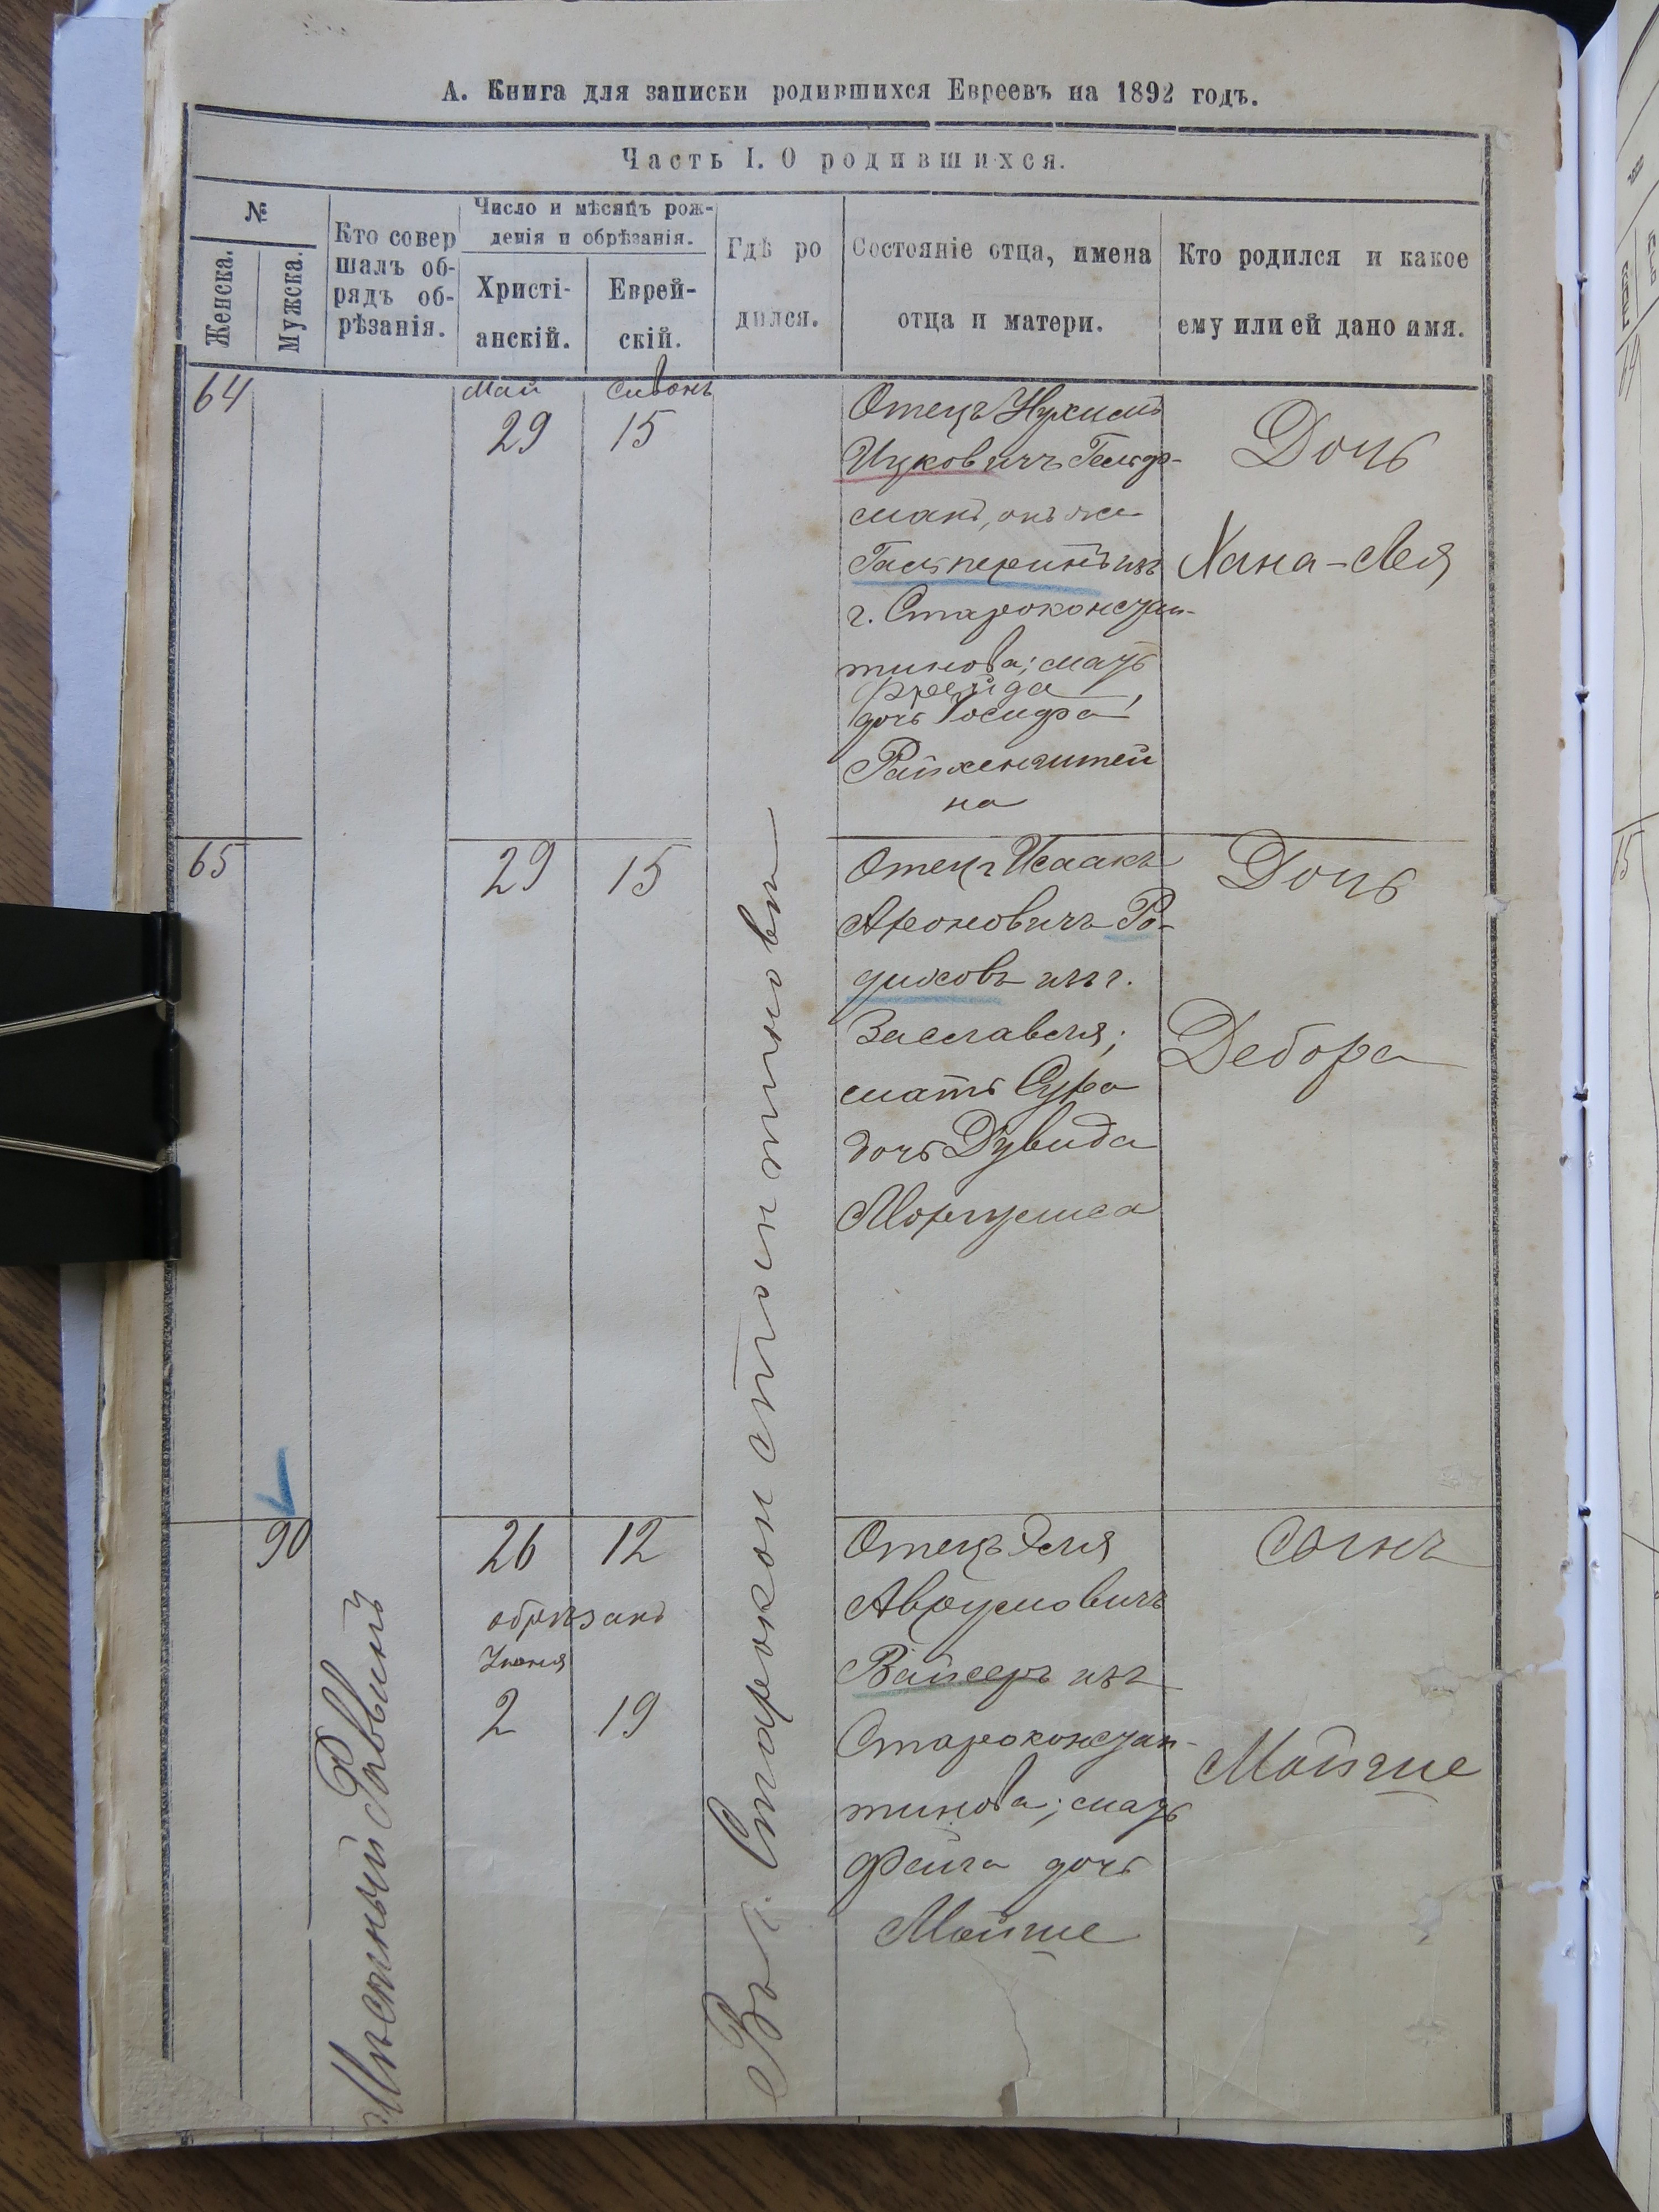 А. Книга для записки родившихся Евреевъ на 1892 годъ.
Часть I. О родившихся.
№
Женска.
Мужска.
Кто совер
шалъ об-
рядъ об-
рѣзанія.
Число и мѣсяцъ рож-
денія и обрѣзанія.
Христі-
анскій.
Еврей-
скій.
Гдѣ ро
дился.
Состояніе отца, имена
отца и матери.
Кто родился и какое
ему или ей дано имя.
64
Май
29
Сивонъ
15
Отецъ Нухимъ
Ицковичъ Гельф-
манъ, онъ же
Гальперинъ изъ
г. Староконстан-
тинова; мать
Фрейда
дочь Іосифа
Райхенштей
на
Дочь
Хана-Лея
65
29
15
Отецъ Исаакъ
Ароновичъ Ро-
изъ г.
Заславля;
мать Сура
дочь Дувида
Дочь
Дебора
90
Мѣстный Раввинъ
26
12
обрѣзанъ
Іюня
2
19
Въ г. Староконстантиновѣ
Отецъ Эля
Аврумовичъ
Вайсеръ изъ
Староконстан-
тинова; мать
Фейга дочь
Мойше
Сынъ
Мойше